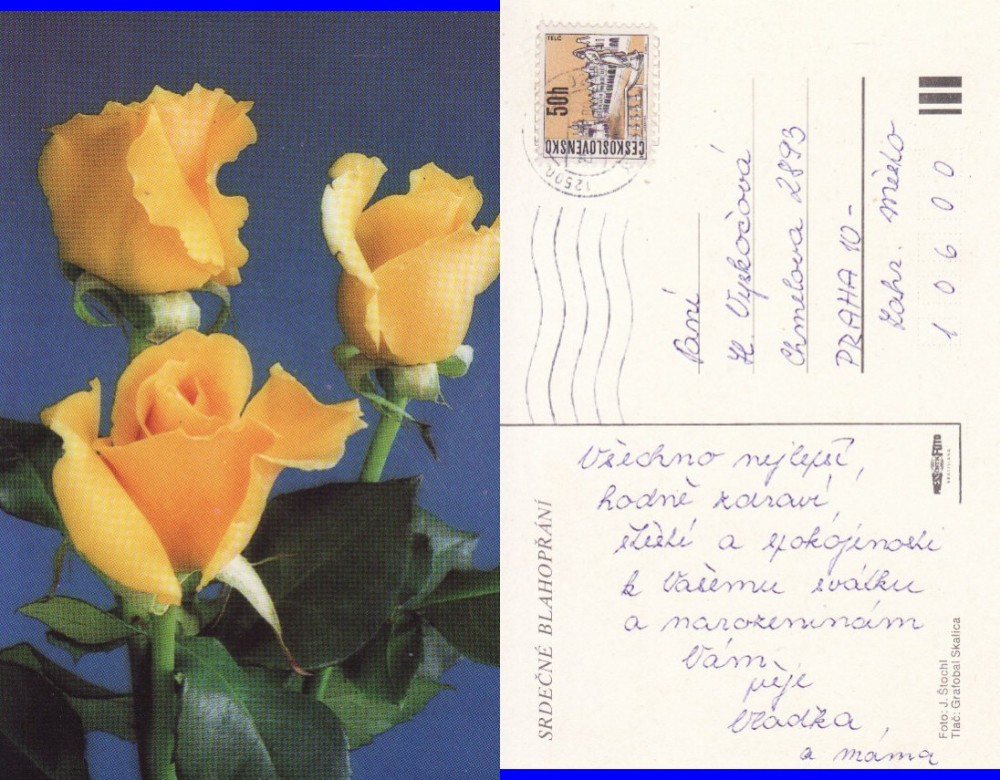 50h
ČESKOSLOVENSKO
12500
Paní
H. Vyskočová
Chmelova 2893
PRAHA 10 -
Zahr. Město
1 0 6 0 0
PRESSFOTO
BRATISLAVA
SRDEČNÉ BLAHOPŘÁNÍ
Všechno nejlepší,
hodně zdraví,
štěstí a spokojenosti
k Vašemu svátku
a narozeninám
Vám
přeje
Vladka
a máma
Foto: J. Štochl
Tlač: Grafobal Skalica